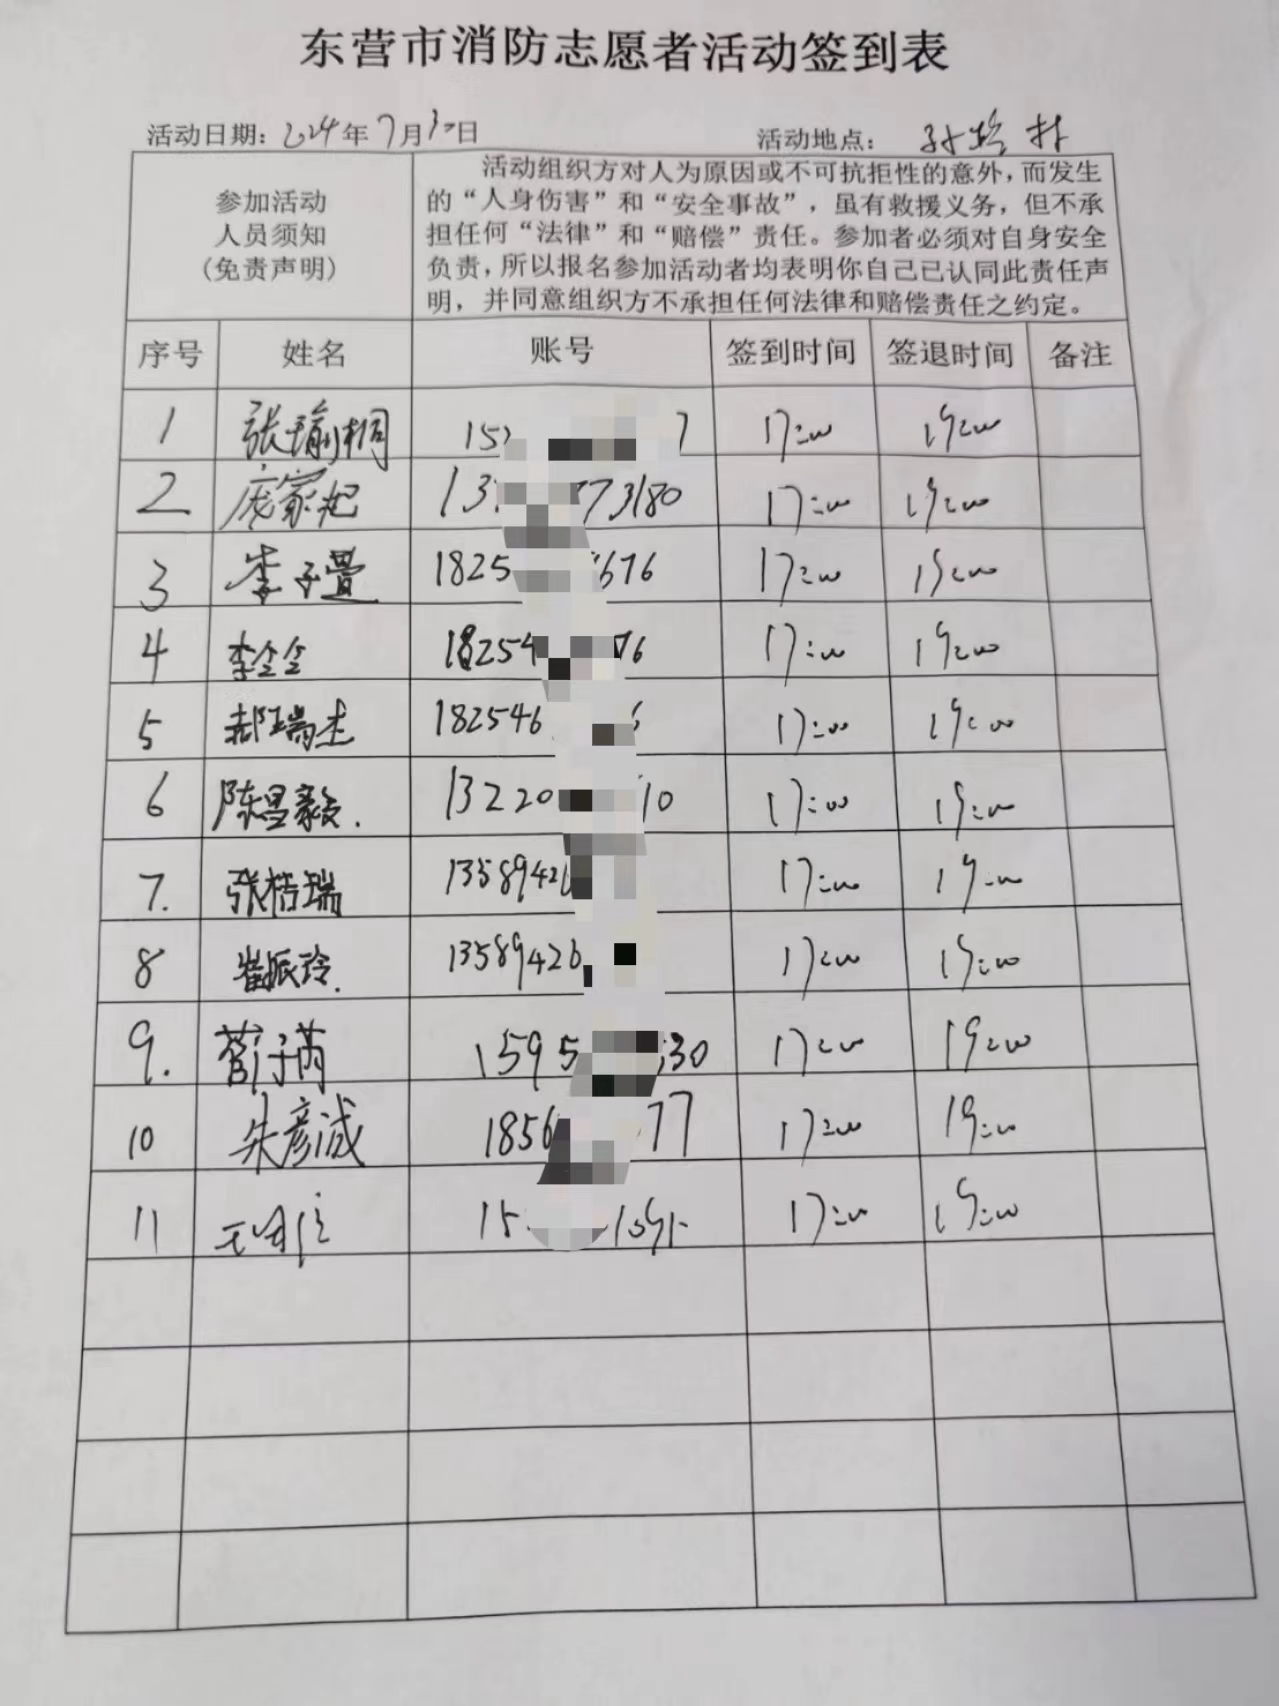 东营市消防志愿者活动签到表
活动日期：2024年7月30日 活动地点： 村
参加活动
人员须知
(免责声明)
活动组织方对人为原因或不可抗拒性的意外，而发生
的“人身伤害”和“安全事故”，虽有救援义务，但不承
担任何“法律”和“赔偿”责任。参加者必须对自身安全
负责，所以报名参加活动者均表明你自己已认同此责任声
明，并同意组织方不承担任何法律和赔偿责任之约定。
序号 姓名 账号 签到时间 签退时间 备注
1 张瑜桐 15 7 17:00 19:00
2 庞家 13 73180 17:00 19:00
3 李子 1825 676 17:00 19:00
4 李仝仝 18254 76 17:00 19:00
5 郝瑞杰 182546 6 17:00 19:00
6 陈昱毅. 13220 10 17:00 19:00
7. 张梧瑞 1358942 17:00 19:00
8 崔振玲. 13589426 17:00 19:00
9. 菅子芮 1595 530 17:00 19:00
10 朱彦诚 1856 77 17:00 19:00
11 15 17:00 19:00